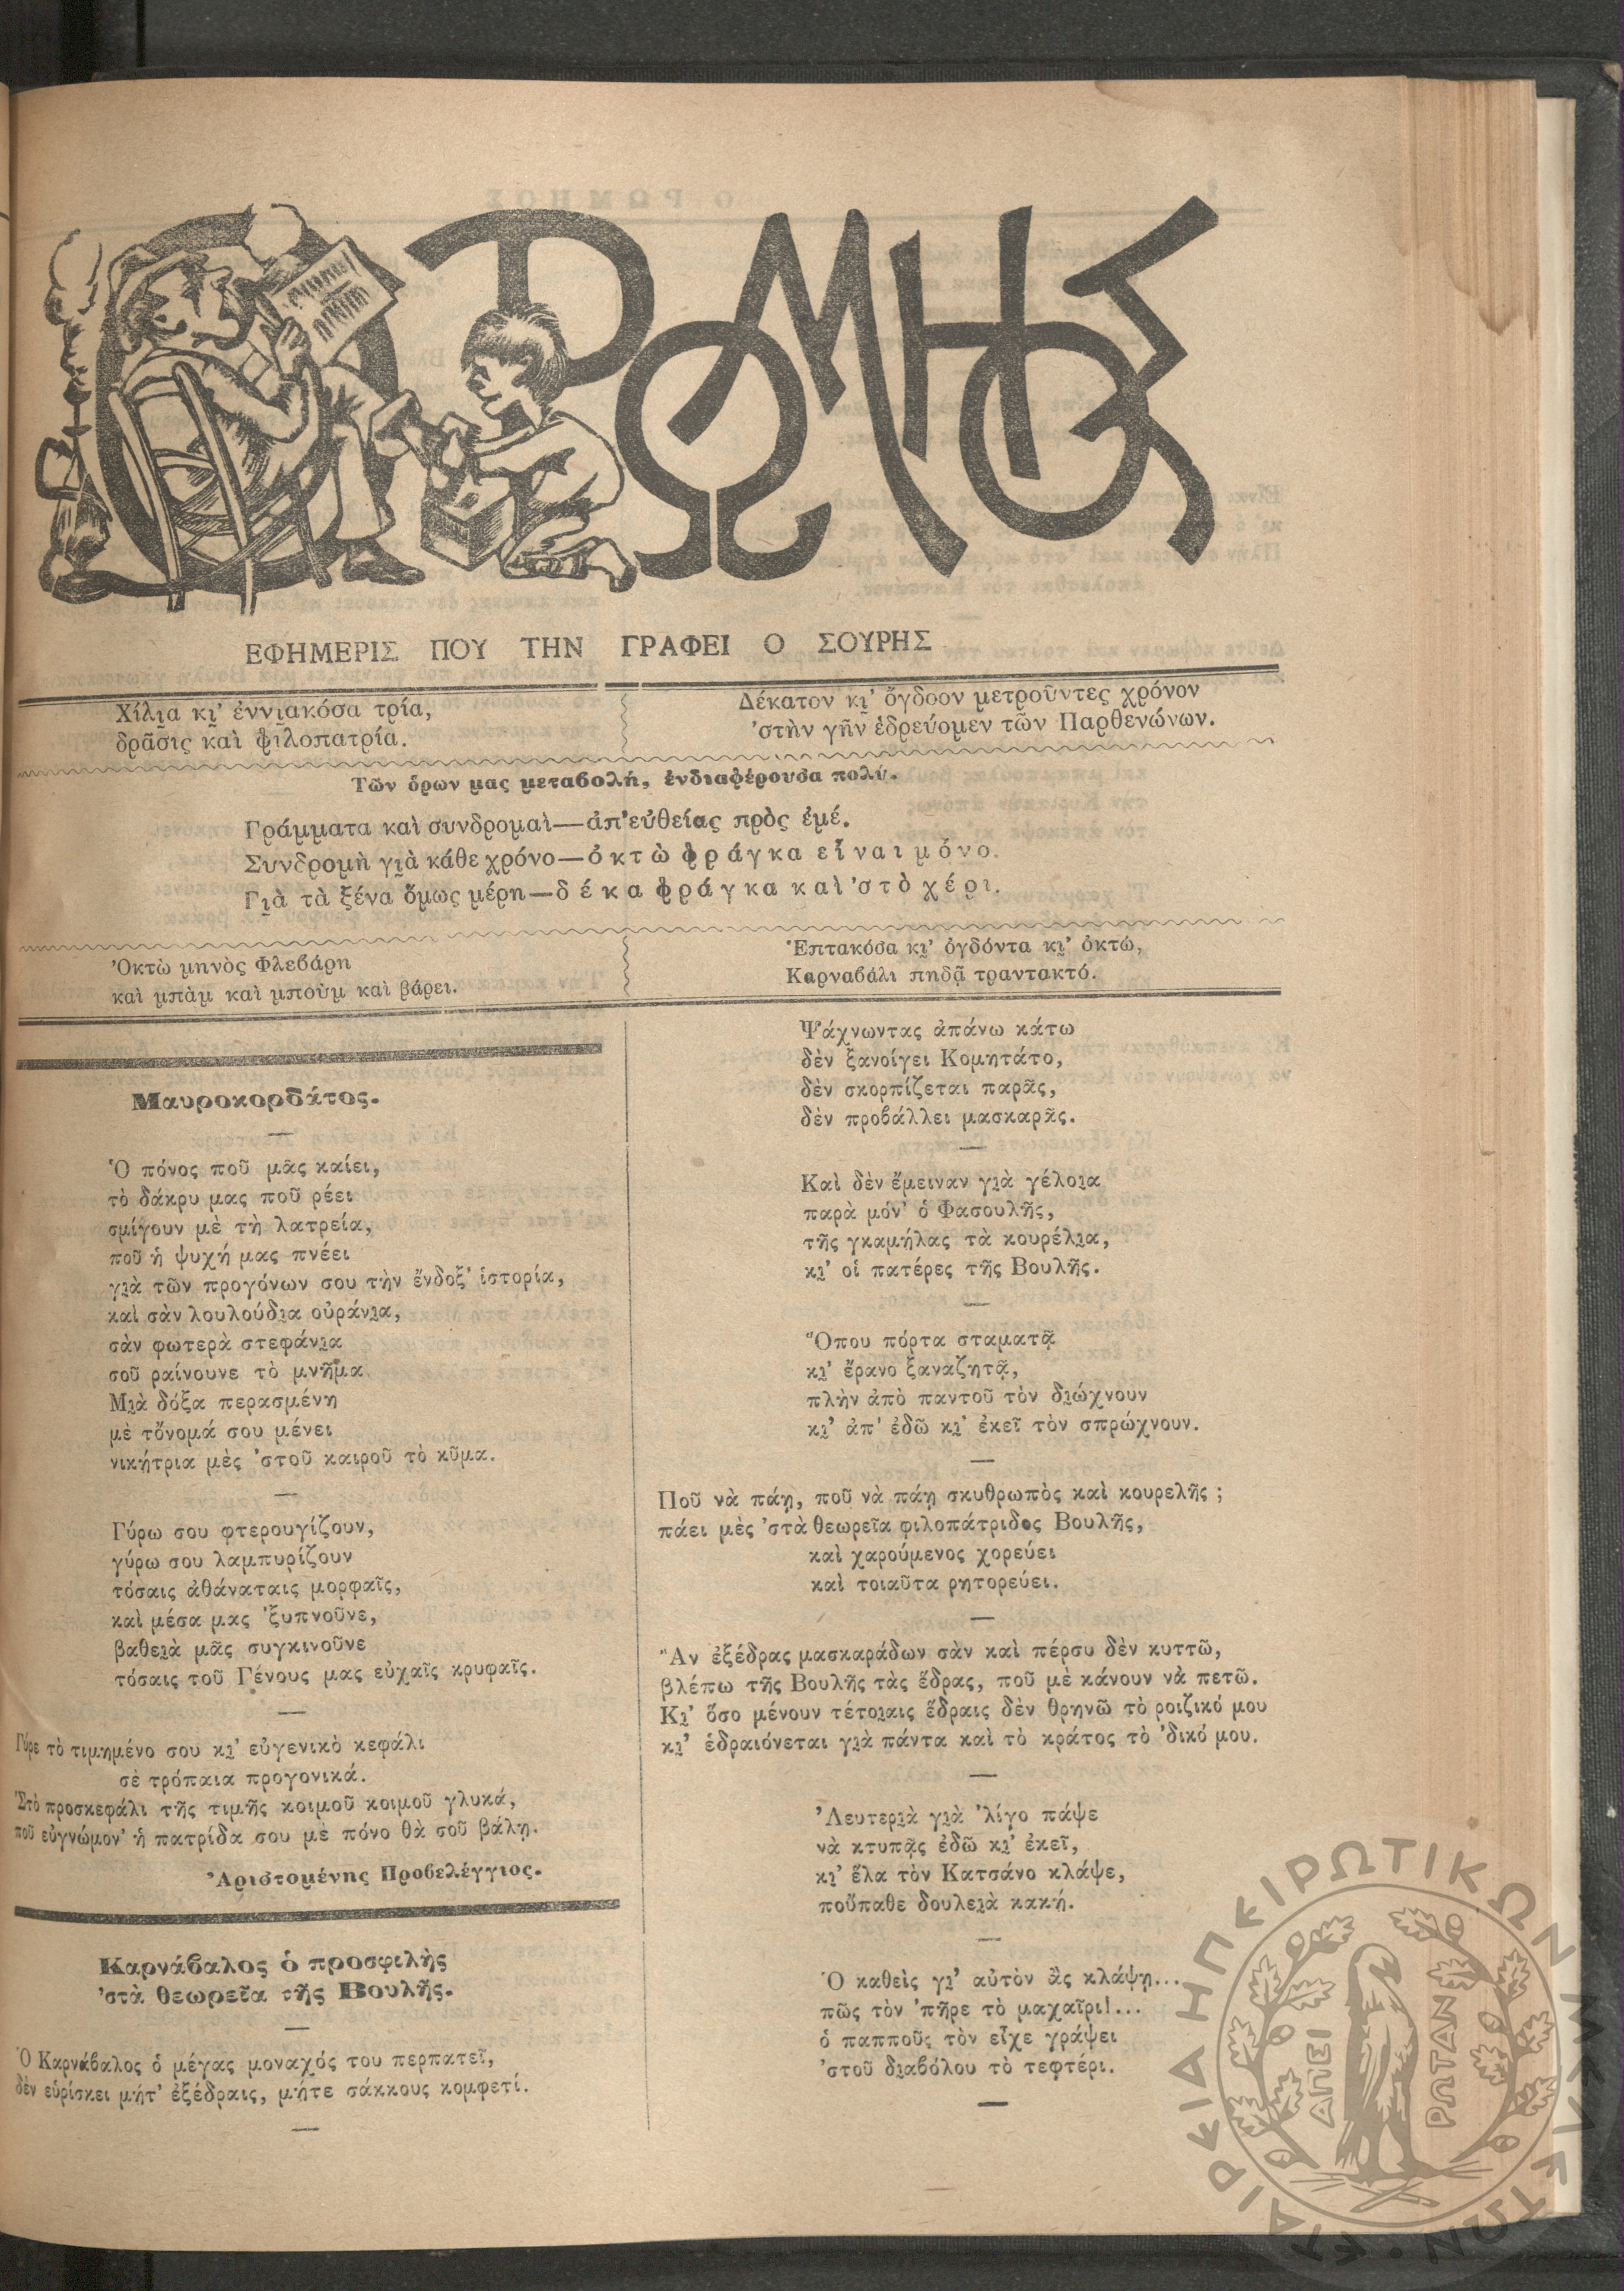 Ο ΡΩΜΗΟΣ
ΕΦΗΜΕΡΙΣ ΠΟΥ ΤΗΝ ΓΡΑΦΕΙ Ο ΣΟΥΡΗΣ
Χίλι̯α κι̯' ἐννι̯ακόσα τρία,
δρᾶσις καὶ φιλοπατρία.
Δέκατον κι̯' ὄγδοον μετροῦντες χρόνον
'στὴν γῆν ἑδρεύομεν τῶν Παρθενώνων.
Τῶν ὅρων μας μεταβολή, ἐνδιαφέρουσα πολύ.
Γράμματα καὶ συνδρομαὶ—ἀπ'εὐθείας πρὸς ἐμέ.
Συνδρομὴ γι̯ὰ κάθε χρόνο—ὀκτὼ φράγκα εἶναι μόνο.
Γι̯ὰ τὰ ξένα ὅμως μέρη—δέκα φράγκα καὶ 'στὸ χέρι.
Ὀκτὼ μηνὸς Φλεβάρη
καὶ μπὰμ καὶ μποὺμ καὶ βάρει.
Ἑπτακόσα κι̯' ὀγδόντα κι̯' ὀκτώ,
Καρναβάλι πηδᾷ τραντακτό.
Μαυροκορδάτος.
Ὁ πόνος ποῦ μᾶς καίει,
τὸ δάκρυ μας ποῦ ρέει
σμίγουν μὲ τὴ λατρεία,
ποῦ ἡ ψυχή μας πνέει
γι̯ὰ τῶν προγόνων σου τὴν ἔνδοξ' ἱστορία,
καὶ σὰν λουλούδι̯α οὐράνι̯α,
σὰν φωτερὰ στεφάνι̯α
σοῦ ραίνουνε τὸ μνῆμα.
Μι̯ὰ δόξα περασμένη
μὲ τὄνομά σου μένει
νικήτρια μὲς 'στοῦ καιροῦ τὸ κῦμα.
Γύρω σου φτερουγίζουν,
γύρω σου λαμπυρίζουν
τόσαις ἀθάναταις μορφαῖς,
καὶ μέσα μας 'ξυπνοῦνε,
βαθει̯ὰ μᾶς συγκινοῦνε
τόσαις τοῦ Γένους μας εὐχαῖς κρυφαῖς.
Γύρε τὸ τιμημένο σου κι̯' εὐγενικὸ κεφάλι
σὲ τρόπαια προγονικά.
Στὸ προσκεφάλι τῆς τιμῆς κοιμοῦ κοιμοῦ γλυκά,
ποῦ εὐγνώμον' ἡ πατρίδα σου μὲ πόνο θὰ σοῦ βάλῃ.
Ἀριστομένης Προβελέγγιος.
Καρνάβαλος ὁ προσφιλὴς
'στὰ θεωρεῖα τῆς Βουλῆς.
Ὁ Καρνάβαλος ὁ μέγας μοναχός του περπατεῖ,
δὲν εὑρίσκει μήτ' ἐξέδραις, μήτε σάκκους κομφετί.
Ψάχνωντας ἀπάνω κάτω
δὲν ξανοίγει Κομητάτο,
δὲν σκορπίζεται παρᾶς,
δὲν προβάλλει μασκαρᾶς.
Καὶ δὲν ἔμειναν γι̯ὰ γέλοι̯α
παρὰ μόν' ὁ Φασουλῆς,
τῆς γκαμήλας τὰ κουρέλι̯α,
κι̯' οἱ πατέρες τῆς Βουλῆς.
Ὅπου πόρτα σταματᾷ
κι̯' ἔρανο ξαναζητᾷ,
πλὴν ἀπὸ παντοῦ τὸν δι̯ώχνουν
κι̯' ἀπ' ἐδῶ κι̯' ἐκεῖ τὸν σπρώχνουν.
Ποῦ νὰ πάῃ, ποῦ νὰ πάῃ σκυθρωπὸς καὶ κουρελῆς ;
πάει μὲς 'στὰ θεωρεῖα φιλοπάτριδος Βουλῆς,
καὶ χαρούμενος χορεύει
καὶ τοιαῦτα ρητορεύει.
Ἂν ἐξέδρας μασκαράδων σὰν καὶ πέρσυ δὲν κυττῶ,
βλέπω τῆς Βουλῆς τὰς ἕδρας, ποῦ μὲ κάνουν νὰ πετῶ.
Κι̯' ὅσο μένουν τέτοι̯αις ἕδραις δὲν θρηνῶ τὸ ροιζικό μου
κι̯' ἑδραιόνεται γι̯ὰ πάντα καὶ τὸ κράτος τὸ 'δικό μου.
Λευτερι̯ὰ γι̯ὰ 'λίγο πάψε
νὰ κτυπᾷς ἐδῶ κι̯' ἐκεῖ,
κι̯' ἔλα τὸν Κατσάνο κλάψε,
ποὔπαθε δουλει̯ὰ κακή.
Ὁ καθεὶς γι̯' αὐτὸν ἂς κλάψῃ...
πῶς τὸν 'πῆρε τὸ μαχαῖρι!...
ὁ παπποῦς τὸν εἶχε γράψει
'στοῦ δι̯αβόλου τὸ τεφτέρι.
ΕΤΑΙΡΕΙΑ ΗΠΕΙΡΩΤΙΚΩΝ ΜΕΛΕΤΩΝ
ΑΠΕΙ
ΡΩΤΑΝ